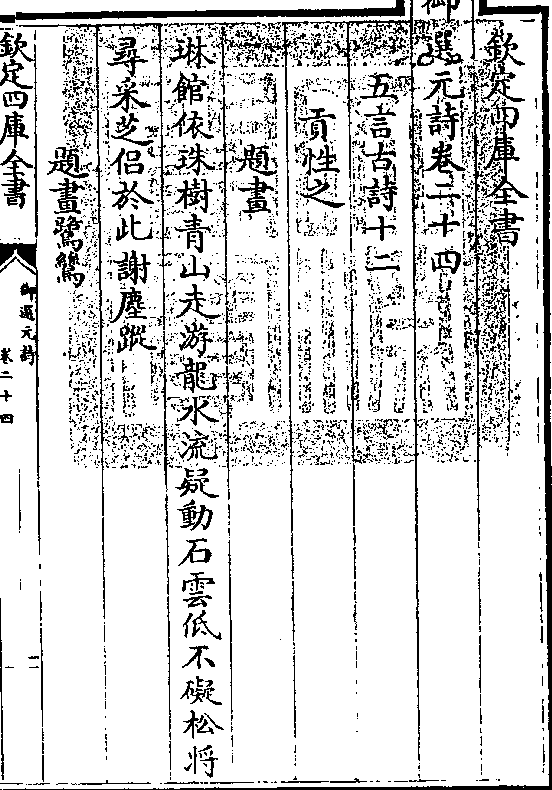 欽定四庫全書
御選元詩卷二十四
五言古詩十二
貢性之
題畫
琳館依珠樹青山走游龍水流疑動石雲低不礙松將
尋采芝侣於此謝塵蹤
題畫鷺鷥
欽定四庫全書
御選元詩
卷二十四
一